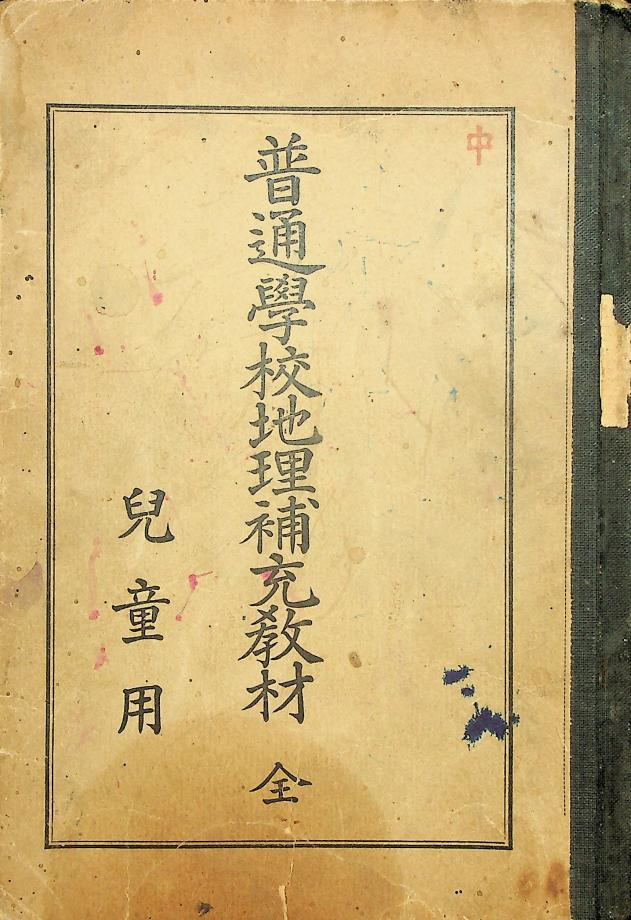 中
普通學校地理補充教材 全
兒童用